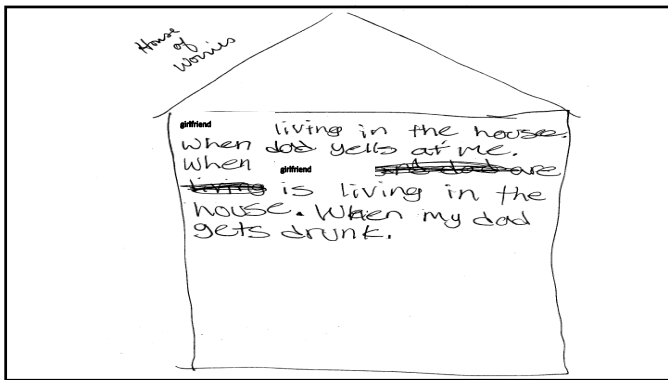 House
of
Worries
girlfriend living in the house.
When dad yells at me.
When girlfriend and dad are
living is living in the
house. When my dad
gets drunk.